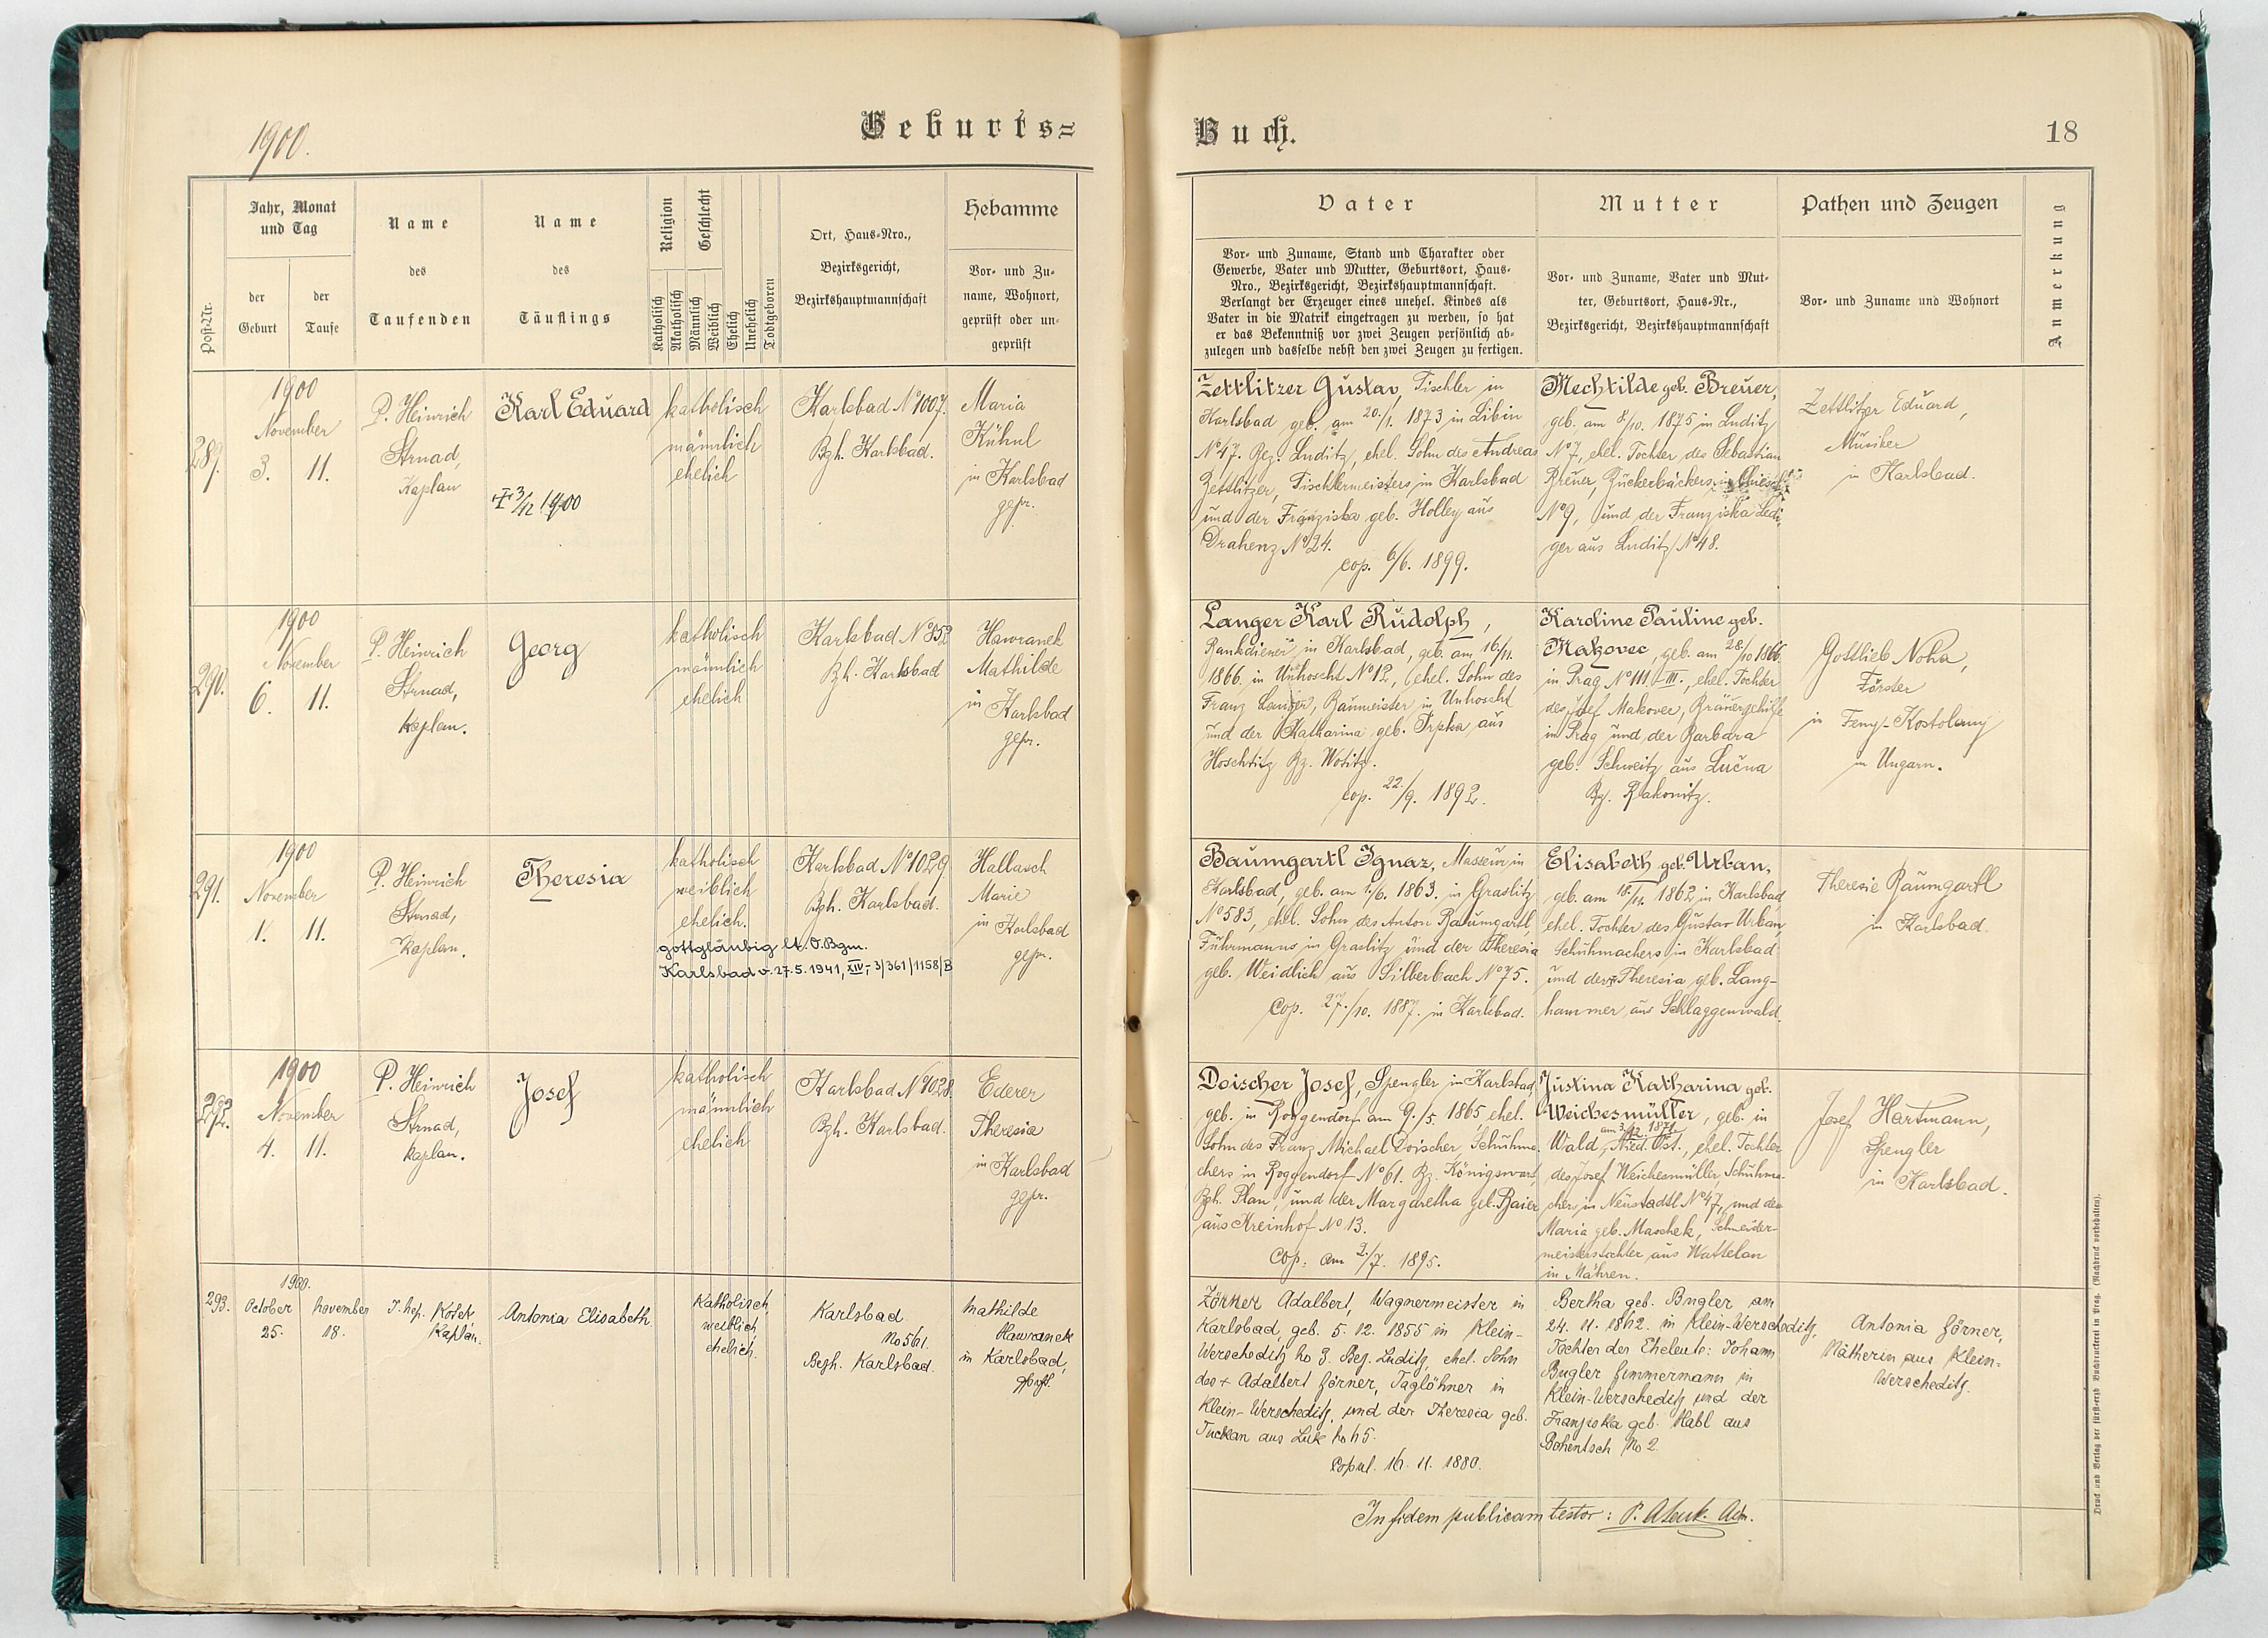 1900.
Geburts=
Post-Nr.
Jahr, Monat
und Tag
der
Geburt
der
Taufe
Name
des
Taufenden
Name
des
Täuflings
Religion
Geschlecht
Katholisch
Akatholisch
Männlich
Weiblich
Ehelich
Unehelich
Todtgeboren
Ort, Haus-Nro.,
Bezirksgericht,
Bezirkshauptmannschaft
Hebamme
Vor- und Zu-
name, Wohnort,
geprüft oder un-
geprüft
289.
1900
November
3. 11.
P. Heinrich
Strnad,
Kaplan
Karl Eduard
† 3/12 1900
katholisch
männlich
ehelich
Karlsbad No 1007.
Bzh. Karlsbad.
Maria
Kühnl
in Karlsbad
gepr.
290.
1900
November
6. 11.
P. Heinrich
Strnad,
Kaplan.
Georg
katholisch
männlich
ehelich
Karlsbad No 852
Bzh. Karlsbad
Hawranek
Mathilde
in Karlsbad
gepr.
291.
1900
November
1. 11.
P. Heinrich
Strnad,
Kaplan.
Theresia
katholisch
weiblich
ehelich.
gottgläubig lt. O.Bgm.
Karlsbad v. 27.5.1941, XIV,-3/361/1158/B
Karlsbad No 1029
Bzh. Karlsbad.
Hallasch
Marie
in Karlsbad
gepr.
292.
1900
November
4. 11.
P. Heinrich
Strnad,
Kaplan.
Josef
katholisch
männlich
ehelich
Karlsbad No 1028.
Bzh. Karlsbad.
Ederer
Theresia
in Karlsbad
gepr.
293.
1900.
October November
25. 18.
Kaplan.
Antonia Elisabeth
Katholisch,
weiblich,
ehelich.
Karlsbad
No 561.
Bezh. Karlsbad.
Mathilde
Hawranek
in Karlsbad,
Buch.
18
Vater
Vor- und Zuname, Stand und Charakter oder
Gewerbe, Vater und Mutter, Geburtsort, Haus-
Nro., Bezirksgericht, Bezirkshauptmannschaft.
Verlangt der Erzeuger eines unehel. Kindes als
Vater in die Matrik eingetragen zu werden, so hat
er das Bekenntniß vor zwei Zeugen persönlich ab-
zulegen und dasselbe nebst den zwei Zeugen zu fertigen.
Mutter
Vor- und Zuname, Vater und Mut-
ter, Geburtsort, Haus-Nr.,
Bezirksgericht, Bezirkshauptmannschaft
Pathen und Zeugen
Vor- und Zuname und Wohnort
Anmerkung
Zettlitzer Gustav, Tischler in
Karlsbad geb. am 20./1. 1873 in Libin
No 47. Bez. Luditz, ehel. Sohn des Andreas
Zettlitzer, Tischlermeisters in Karlsbad
und der Franziska geb. Holley aus
Drahenz No 24.
cop. 6/6. 1899.
Mechtilde geb. Breuer,
geb. am 8/10. 1875 in Luditz
No 7, ehel. Tochter des Sebastian
Breuer, Zuckerbäckers in
No 9, und der Franziska Ledi-
ger aus Luditz No 48.
Zettlitzer Eduard,
Musiker
in Karlsbad.
Langer Karl Rudolph,
Bankdiener in Karlsbad, geb. am 16/11.
1866. in Unhoscht No 12, ehel. Sohn des
Franz Langer, Baumeister in Unhoscht
und der Katharina geb. Trpka aus
Hoschtitz Bz. Wotitz.
cop. 22./9. 1892.
Karoline Pauline geb.
Makovec, geb. am 28/10 1866
in Prag No 111-III., ehel. Tochter
des Josef Makovec, Bräuergehilfe
in Prag und der Barbara
geb. Schweitz aus Lučna
Bz. Rakonitz.
Gottlieb Noha,
Förster
in Feny-Kostolany
in Ungarn.
Baumgartl Ignaz, Masseur in
Karlsbad, geb. am 1/6. 1863. in Graslitz
No 583, ehel. Sohn des Anton Baumgartl,
Fuhrmanns in Graslitz und der Theresia
geb. Weidlich aus Silberbach No 75.
Cop. 27./10. 1887. in Karlsbad.
Elisabeth geb. Urban,
geb. am 18./11. 1862 in Karlsbad
ehel. Tochter des Gustav Urban,
Schuhmachers in Karlsbad
und der Theresia geb. Lang-
hammer, aus Schlaggenwald.
Theresie Baumgartl
in Karlsbad.
Doischer Josef, Spengler in Karlsbad,
geb. in Roggendorf am 9./5. 1865, ehel.
Sohn des Franz Michael Doischer, Schuhma-
chers in Roggendorf No 61. Bz. Königswart,
Bzh. Plan, und der Margaretha geb. Baier
aus Kreinhof No 13.
Cop. am 2./7. 1895.
Justina Katharina geb.
Weichesmüller, geb. in
am 3/12. 1871.
Wald, Nied. Öst., ehel. Tochter
des Josef Weichesmüller, Schuhma-
chers in Neustadtl No 47, und der
Maria geb. Maschek, Schneider-
meisterstochter aus Wattelau
in Mähren.
Josef Hartmann,
Spengler
in Karlsbad.
Zörner Adalbert, Wagnermeister in
Karlsbad, geb. 5. 12. 1855 in Klein-
Werscheditz No 3. Bez. Luditz, ehel. Sohn
des † Adalbert Zörner, Taglöhner in
Klein-Werscheditz, und der Theresia geb.
Tuckan aus Luk No 65.
Copul. 16. 11. 1880.
Bertha geb. Bugler am
24. 11. 1862. in Klein-Werscheditz,
Tochter der Eheleute: Johann
Bugler Zimmermann in
Klein-Werscheditz und der
Franziska geb. Habl aus
Bohentsch No 2.
Antonia Zörner,
Nätherin aus Klein-
Werscheditz.
In fidem publicam testor:
Druck und Verlag der fürst-erzb. Buchdruckerei in Prag. (Nachdruck vorbehalten).